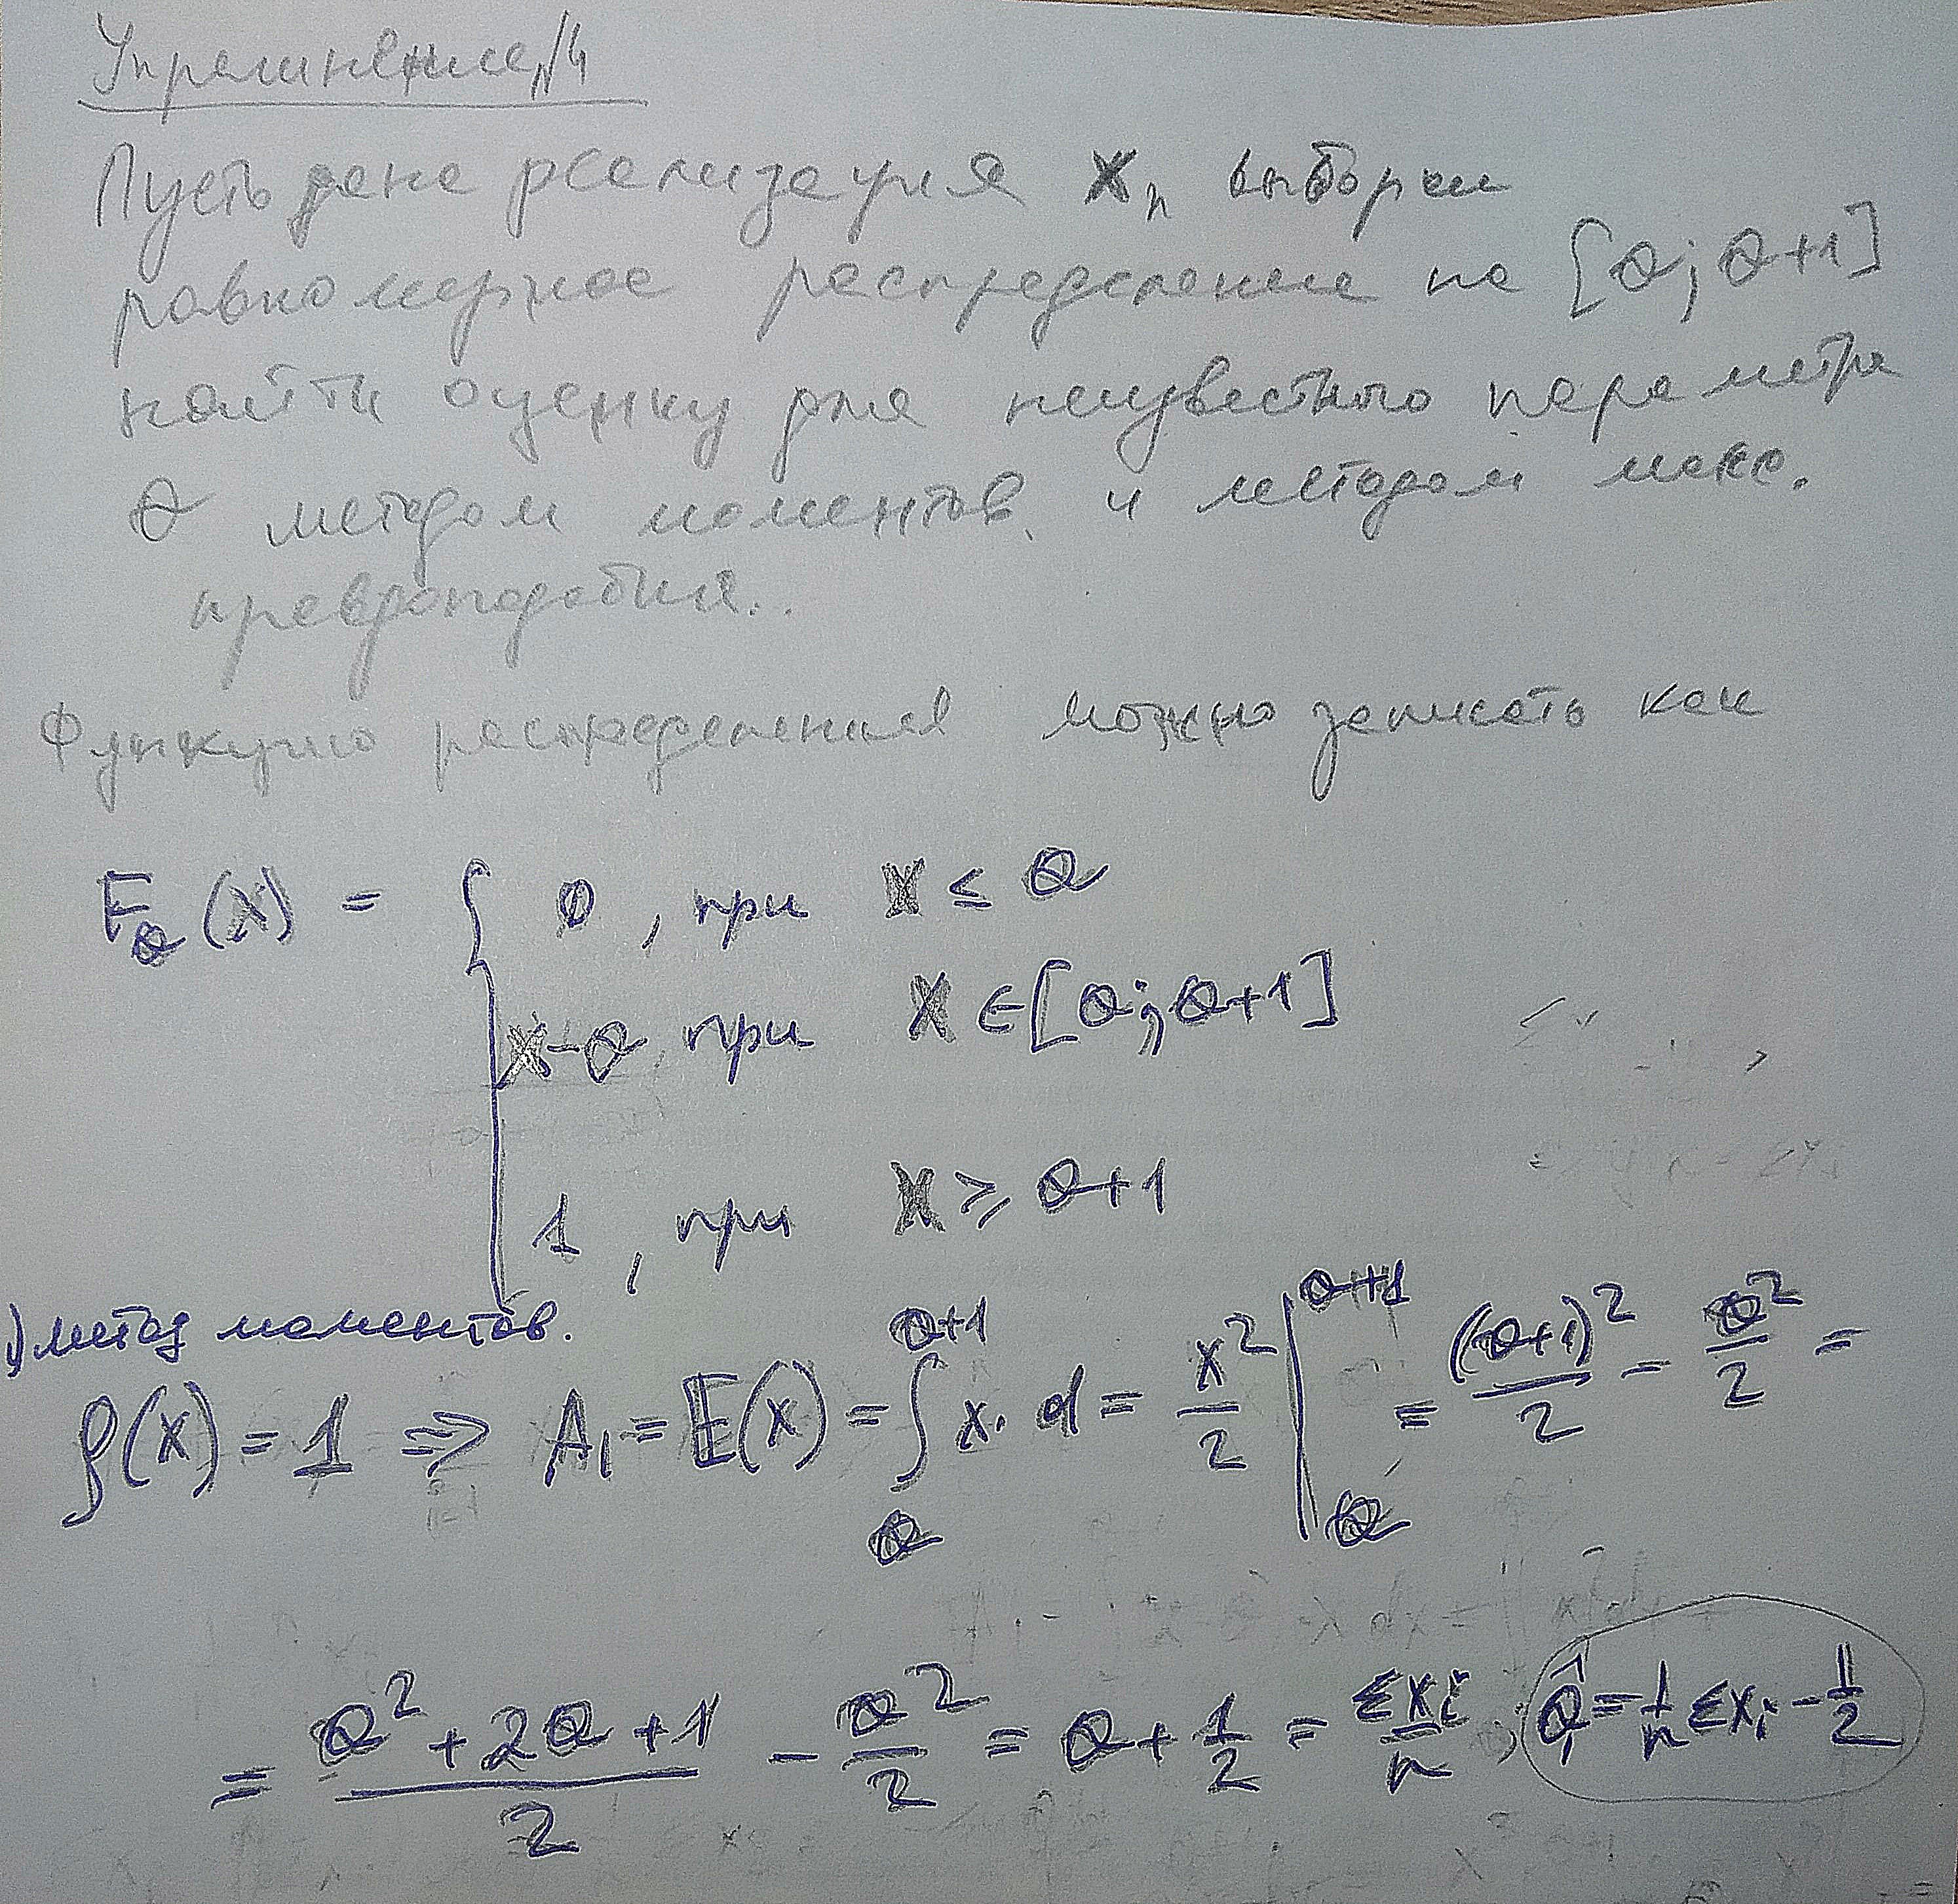 Упражнение №4
Пусть дана реализация xₙ выборки
равномерное распределение на [θ; θ+1]
найти оценку для неизвестного параметра
θ методом моментов и методом макс.
правдоподобия..
Функцию распределения можно записать как
F_θ(x) = { 0, при x ≤ θ
x-θ, при x ∈ [θ; θ+1]
1, при x ≥ θ+1
1) метод моментов.
ρ(x) = 1 ⇒ A₁ = E(x) = ∫_θ^{θ+1} x · d = x²/2 |_θ^{θ+1} = (θ+1)²/2 - θ²/2 =
= (θ² + 2θ + 1)/2 - θ²/2 = θ + 1/2 = Σxᵢ/n ; θ̂₁ = 1/n Σxᵢ - 1/2